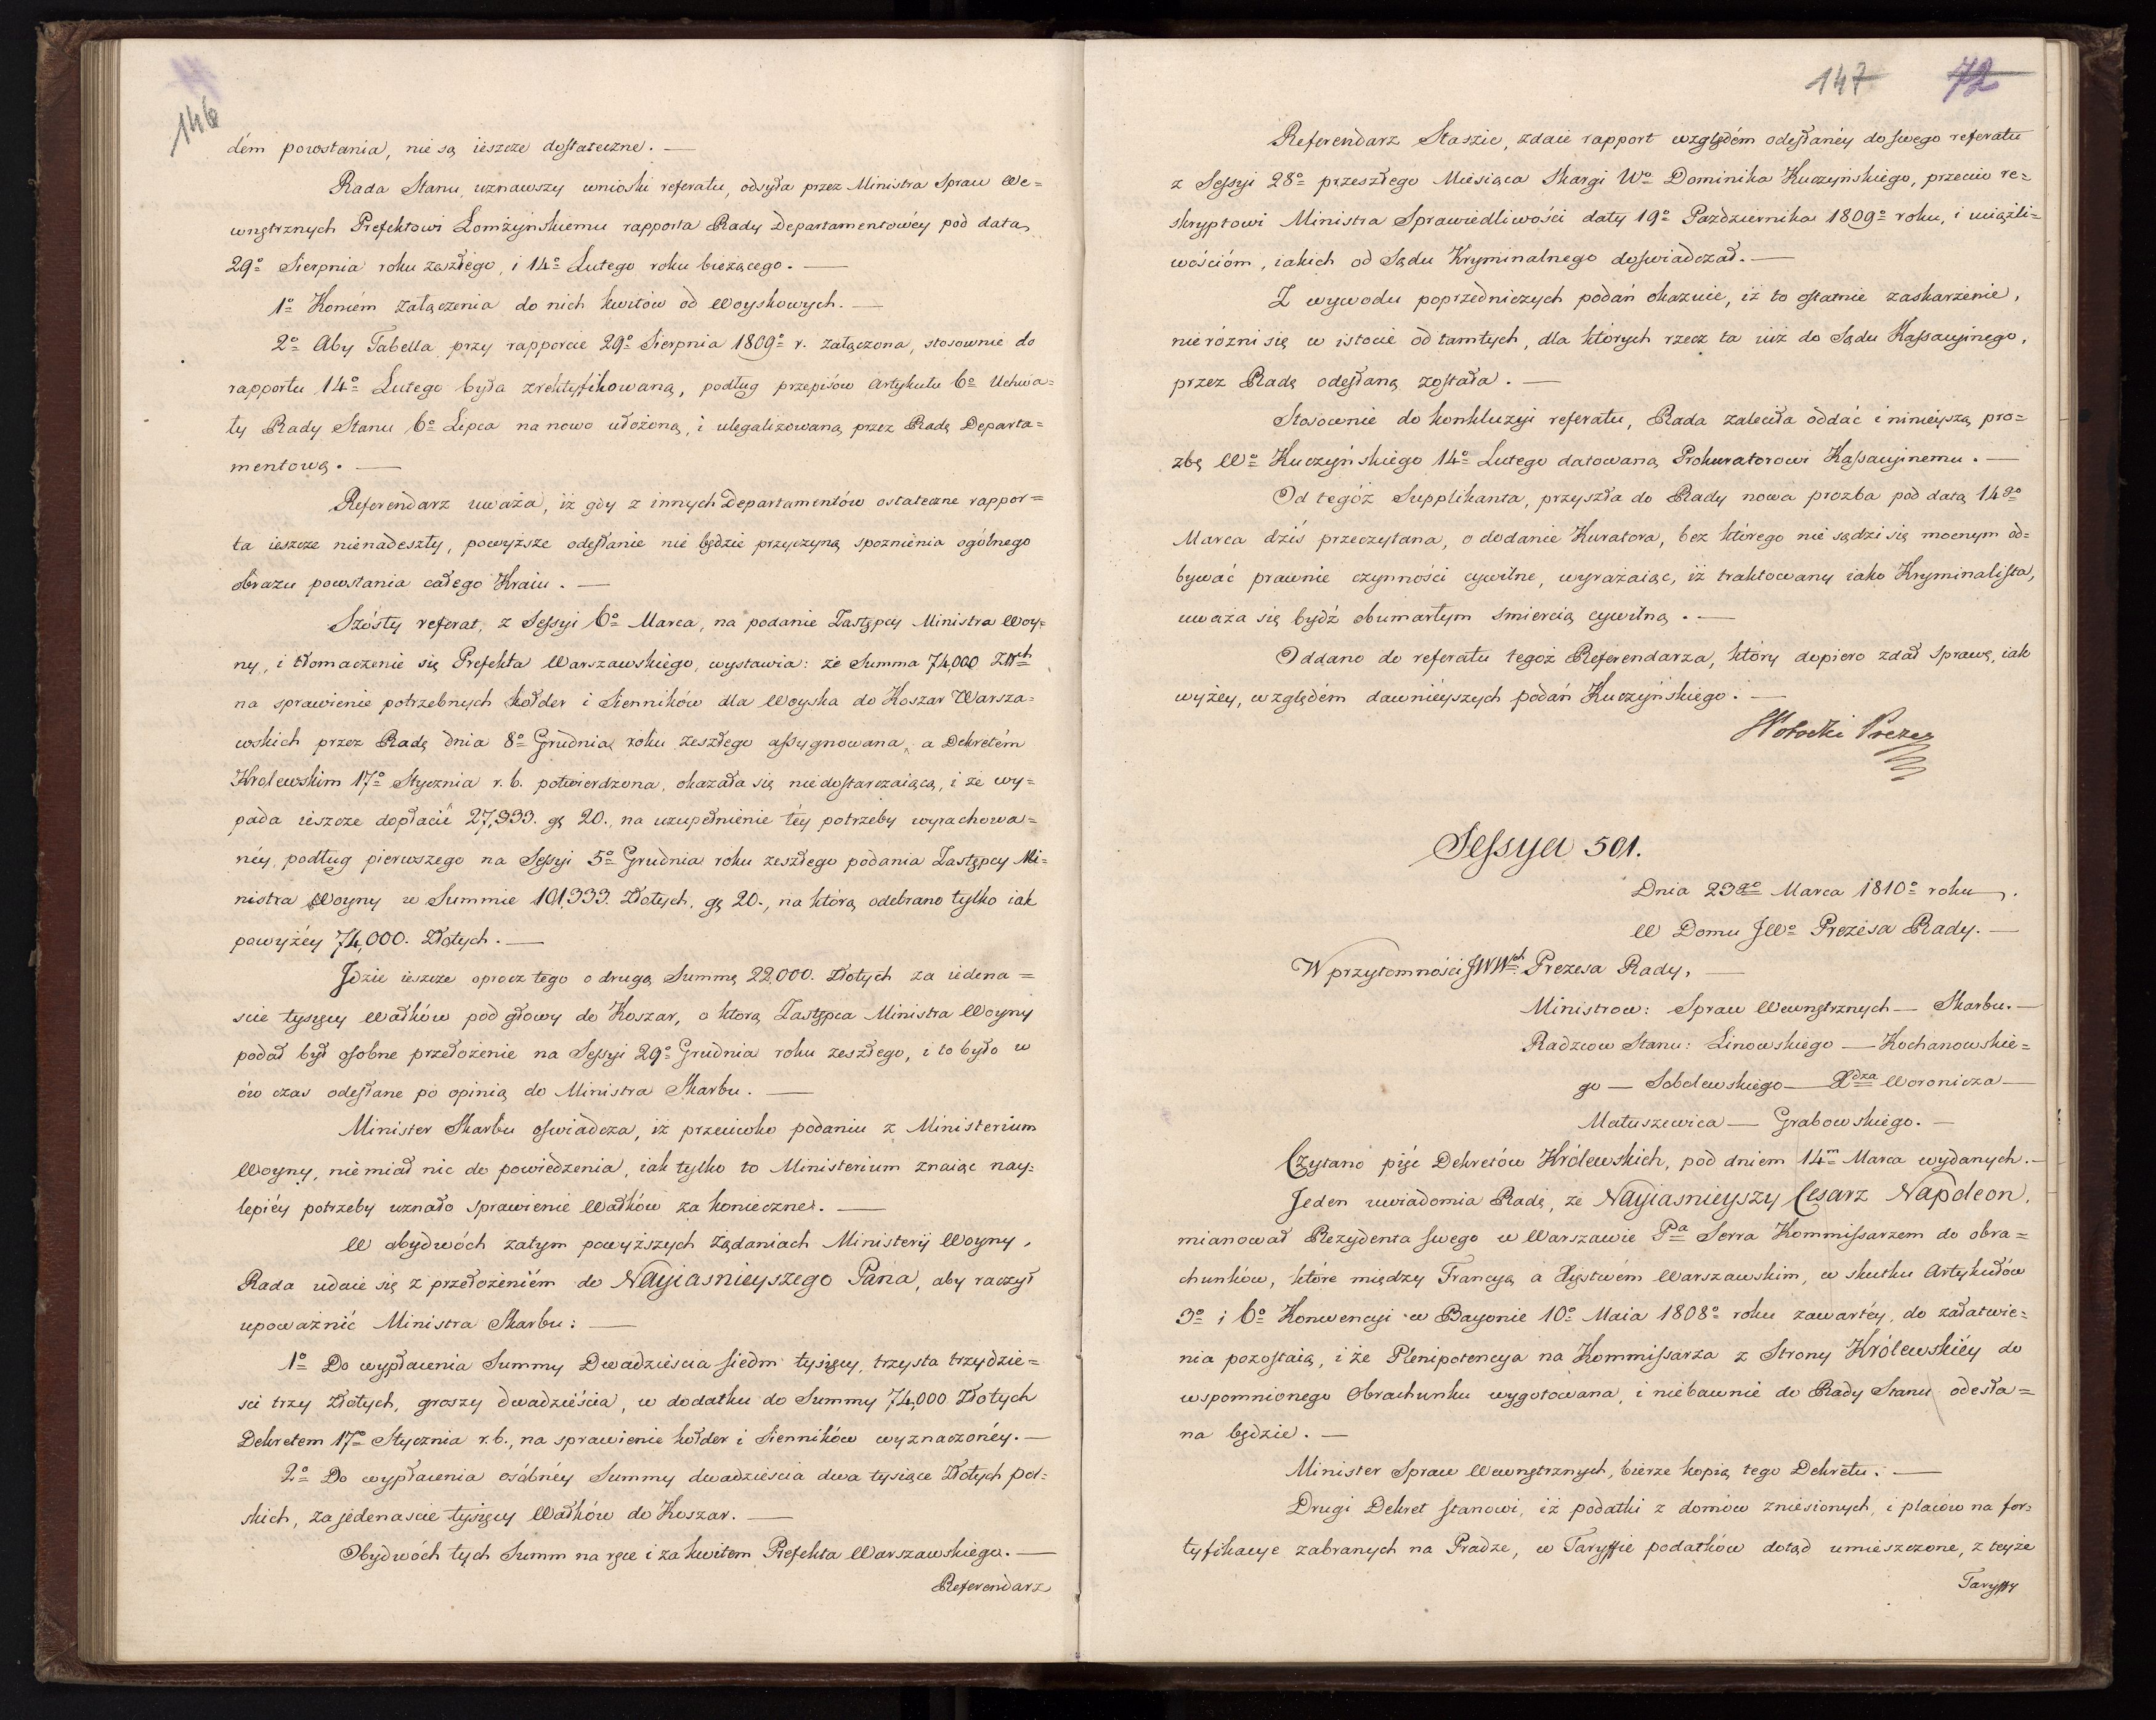 146
dém powstania, nie są ieszcze dostateczne. —
Rada Stanu, uznawszy wnioski referatu, odsyła przez Ministra Spraw We=
wnętrznych Prefektowi Łomżyńskiemu rapporta Rady Departamentowéy pod datą
29º Sierpnia roku zeszłego, i 14º Lutego roku bieżącego. —
1º Końcém załączenia do nich kwitów od Woyskowych. —
2º Aby Tabella przy rapporcie 29º Sierpnia 1809º r. załączona, stosownie do
rapportu 14º Lutego była zrektyfikowaną, podług przepisów Artykułu 6º Uchwa=
ły Rady Stanu 6º Lipca na nowo ułożoną, i ulegalizowaną przez Radę Departa=
mentową. —
Referendarz uważa, iż gdy z innych Departamentów ostateczne rappor=
ta ieszcze nienadeszły, powyższe odesłanie nie będzie przyczyną spoznienia ogólnego
obrazu powstania całego Kraiu. —
Szósty referat, z Sessyi 6º Marca, na podanie Zastępcy Ministra Woy=
ny, i tłomaczenie się Prefekta Warszawskiego, wystawia: że Summa 74,000 Złłch
na sprawienie potrzebnych kołder i Sienników dla Woyska do Koszar Warsza=
wskich przez Radę dnia 8º Grudnia roku zeszłego assygnowana, a Dekretém
Krolewskim 17º Stycznia r. b. potwierdzona, okazała się niedostarczaiącą, i że wy=
pada ieszcze dopłacić 27,333. gę 20., na uzupełnienie téy potrzeby wyrachowa=
néy, podług pierwszego na Sessyi 5º Grudnia roku zeszłego podania Zastępcy Mi=
nistra Woyny w Summie 101,333. Złotych, gę 20., na którą odebrano tylko iak
powyżéy 74,000. Złotych. —
Jdzie ieszcze oprocz tego o drugą Summę 22,000. Złotych za iedena=
scie tysięcy Wałków pod głowy do Koszar, o którą Zastępca Ministra Woyny
podał był osobne przełożenie na Sessyi 29º Grudnia roku zeszłego, i to było w
ów czas odesłane po opinią do Ministra Skarbu. —
Minister Skarbu oświadcza, iż przeciwko podaniu z Ministerium
Woyny, niemiał nic do powiedzenia, iak tylko to Ministerium znaiąc nay=
lepiéy potrzeby uznało sprawienie Wałków za konieczne. —
W obydwóch zatym powyższych żądaniach Ministeryi Woyny,
Rada udaie się z przełożeniém do Nayiasnieyszego Pana, aby raczył
upoważnić Ministra Skarbu: —
1º Do wypłacenia Summy Dwadzieścia siedm tysięcy, trzysta trzydzie=
sci trzy Złotych, groszy dwadzieścia, w dodatku do Summy 74,000 Złotych
Dekretem 17º Stycznia r. b., na sprawienie kołder i Sienników wyznaczonéy. —
2º Do wypłacenia osóbnéy Summy dwadzieścia dwa tysiące Złotych pol=
skich, za jedenascie tysięcy Wałków do Koszar. —
Obydwóch tych Summ na ręce i za kwitem Prefekta Warszawskiego. —
Referendarz
147 72
Referendarz Staszic, zdaie rapport względém odesłanéy do swego referatu
z Sessyi 28º przeszłego Miesiąca Skargi Wº Dominika Kuczyńskiego, przeciw re=
skryptowi Ministra Sprawiedliwości daty 19º Pazdziernika 1809º roku, i uciążli=
wościóm, iakich od Sądu Kryminalnego doświadczał. —
Z wywodu poprzedniczych podań okazuie, iż to ostatnie zaskarżenie,
nieróżni się w istocie od tamtych, dla których rzecz ta iuż do Sądu Kassacyinego,
przez Radę odesłaną została. —
Stosownie do konkluzyi referatu, Rada zaleciła oddać i ninieyszą pro=
zbę Wº Kuczyńskiego 14º Lutego datowaną Prokuratorowi Kassacyinemu. —
Od tegóż Supplikanta, przyszła do Rady nowa prozba pod datą 14go
Marca dziś przeczytana, o dodanie Kuratora, bez którego nie sądzi się mocnym od=
bywać prawnie czynności cywilne, wyrażaiąc, iż traktowany iako Kryminalista,
uważa się bydź obumarłym smiercią cywilną. —
Oddano do referatu tegoż Referendarza, który dopiero zdał sprawę, iak
wyżey, względém dawnieyszych podań Kuczyńskiego. —
Potocki Prezes
Sessya 501.
Dnia 23go Marca 1810º roku.
W Domu JWº Prezesa Rady. —
W przytomności JWWch Prezesa Rady, —
Ministrow: Spraw Wewnętrznych — Skarbu. —
Radzcow Stanu: Linowskiego — Kochanowskie=
go — Sobolewskiego — Xdza Woronicza —
Matuszewica — Grabowskiego. —
Czytano pięć Dekretów Królewskich, pod dniem 14m Marca wydanych. —
Jeden uwiadomia Radę, że Nayiasnieyszy Cesarz Napoleon,
mianował Rezydenta swego w Warszawie Pa Serra Kommissarzem do obra=
chunków, które między Francyą a Xięstwém Warszawskim, w skutku Artykułów
3º i 6º Konwencyi w Bayonie 10º Maia 1808º roku zawartéy, do załatwie=
nia pozostaią, i że Plenipotencya na Kommissarza z Strony Królewskiéy do
wspomnionego Obrachunku wygotowana, i niebawnie do Rady Stanu odesła=
na będzie. —
Minister Spraw Wewnętrznych, bierze kopią tego Dekretu. —
Drugi Dekret stanowi, iż podatki z domów zniesionych, i placów na for=
tyfikacye zabranych na Pradze, w Taryffie podatków dotąd umieszczone, z teyże
Taryffy